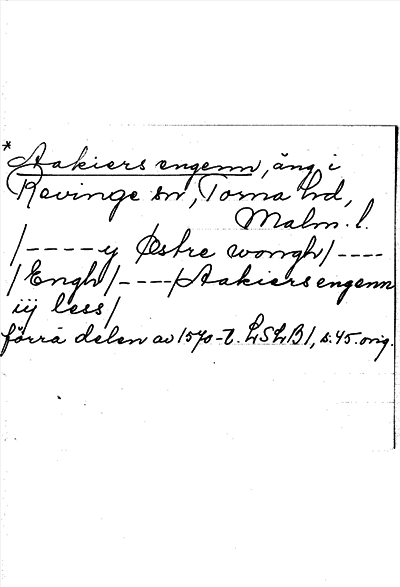 * Aakiers engenn, äng i
Revinge sn, Torna hd,
Malm. l.
/----y Østre wongh/----
/Engh/----/Aakiers engenn
iij less/
förra delen av 1570-t. LSLB1, s.45.orig.